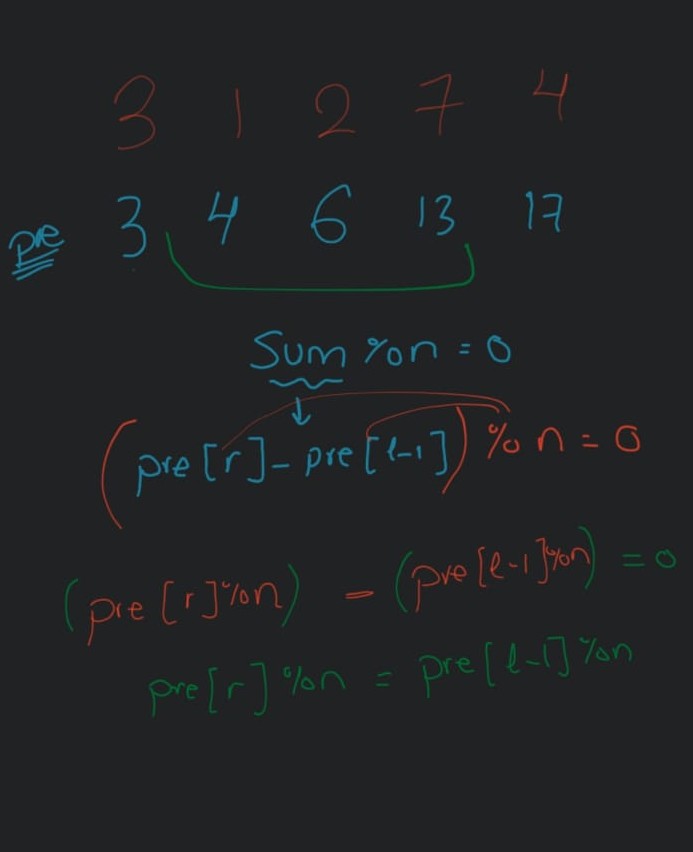 3 1 2 7 4
pre 3 4 6 13 17
Sum % n = 0
(pre[r] - pre[l-1]) % n = 0
(pre[r]%n) - (pre[l-1]%n) = 0
pre[r] % n = pre[l-1] % n